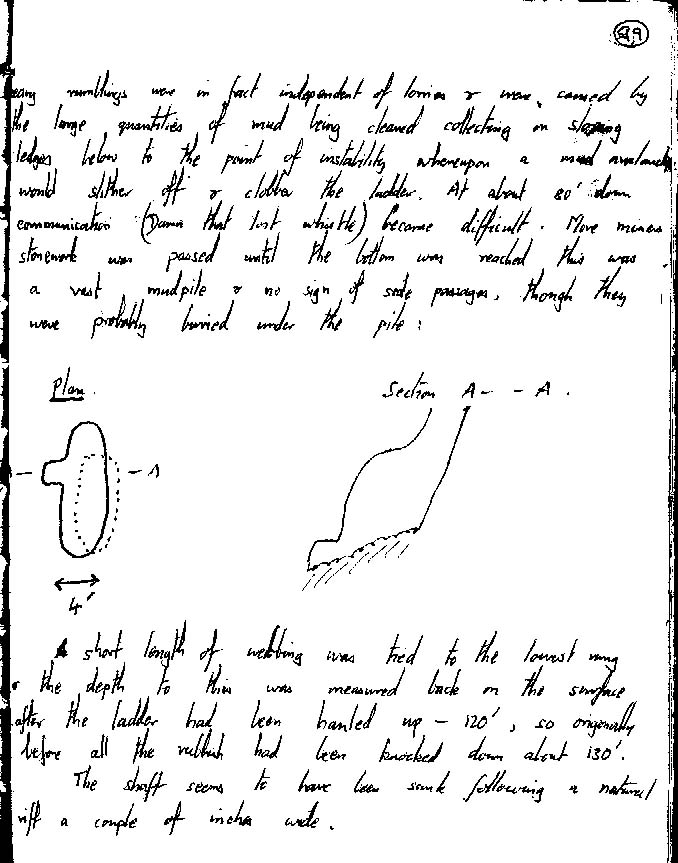 29
eary rumblings were in fact independent of lorries & were, caused by
the large quantities of mud being cleared collecting on sloping
ledges below to the point of instability whereupon a mud avalanche
would slither off & clobber the ladder. At about 80' down
communication (Damn that lost whistle) became difficult. More miners
stonework was passed until the bottom was reached this was
a vast mudpile & no sign of side passages, though they
were probably buried under the pile:
Plan. Section A- - A.
- - A
4'
A short length of webbing was tied to the lowest rung
& the depth to this was measured back on the surface
after the ladder had been hauled up - 120', so originally
before all the rubbish had been knocked down about 130'.
The shaft seems to have been sunk following a natural
rift a couple of inches wide.